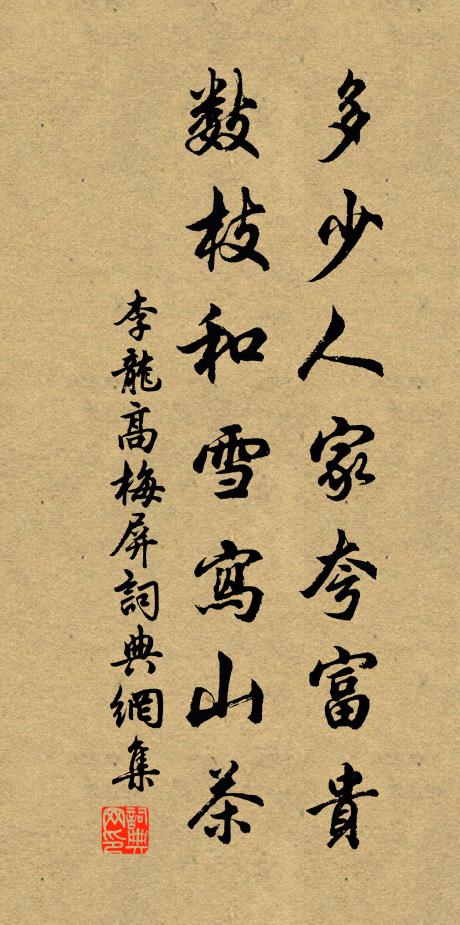 多少人家夸富貴
数枝和雪寫山茶
李龍高梅屏詞典網集
詞典網印